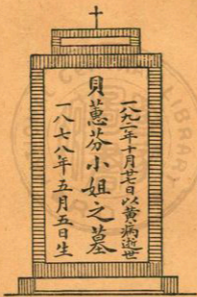 一九二一年十月廿七日以黃病逝世
貝蕙芬小姐之墓
一八七八年五月五日生
LIBRARY